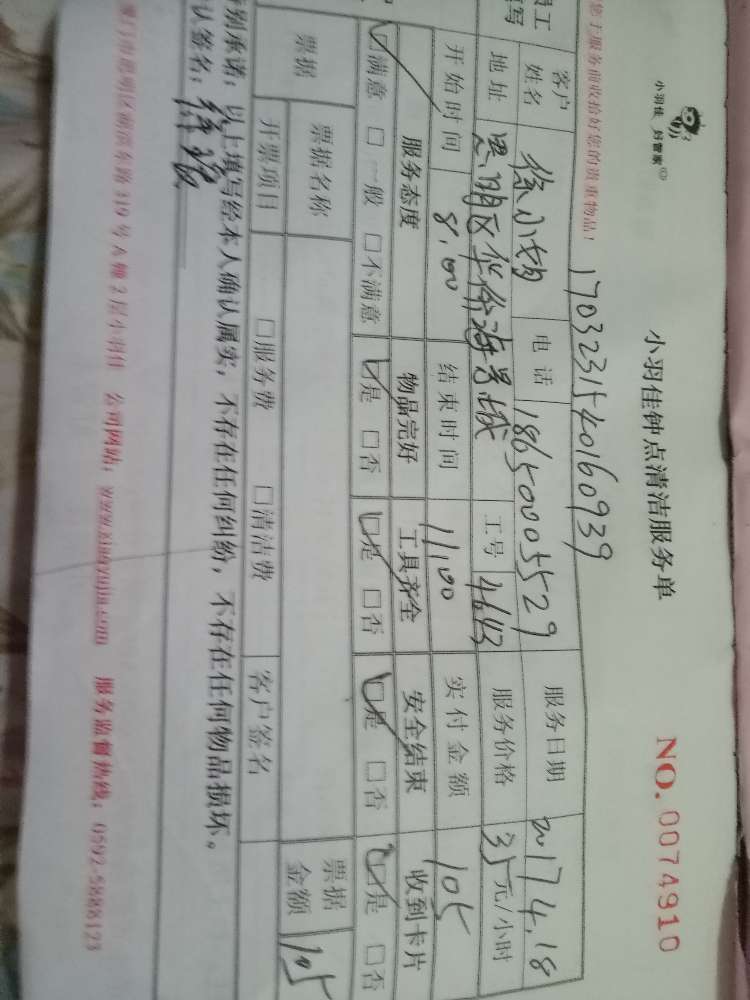 小羽佳 好管家
小羽佳钟点清洁服务单
NO. 0074910
您于服务前收拾好您的贵重物品!
1703231540160939
客户姓名 徐小姐 电话 18650005529 服务日期 2017.4.18
地址 思明区华侨海景城 工号 4643 服务价格 35元/小时
开始时间 8:00 结束时间 11:00 实付金额 105
服务态度 物品完好 工具齐全 安全结束 收到卡片
☑满意 □一般 □不满意 ☑是 □否 ☑是 □否 ☑是 □否 ☑是 □否
票据 票据名称 票据金额 105
开票项目 □服务费 □清洁费 客户签名
别承诺:以上填写经本人确认属实,不存在任何纠纷,不存在任何物品损坏。
认签名:
门市思明区 319号A幢2层小羽佳 公司网站:www.xiaoyujia.com 服务监督热线:0592-5888123